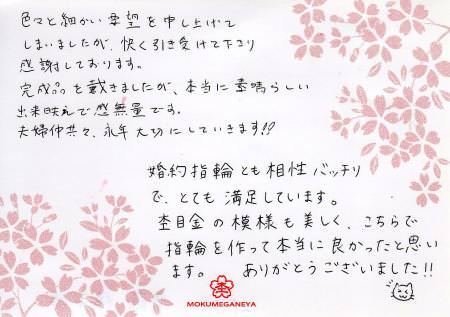 色々と細かい要望を申し上げて
しまいましたが、快く引き受けて下さり
感謝しております。
完成品を戴きましたが、本当に素晴らしい
出来映えで感無量です。
夫婦仲共々、永年大切にしていきます!!
婚約指輪とも相性バッチリ
で、とても満足しています。
杢目金の模様も美しく、こちらで
指輪を作って本当に良かったと思い
ます。 ありがとうございました!!
杢
MOKUMEGANEYA